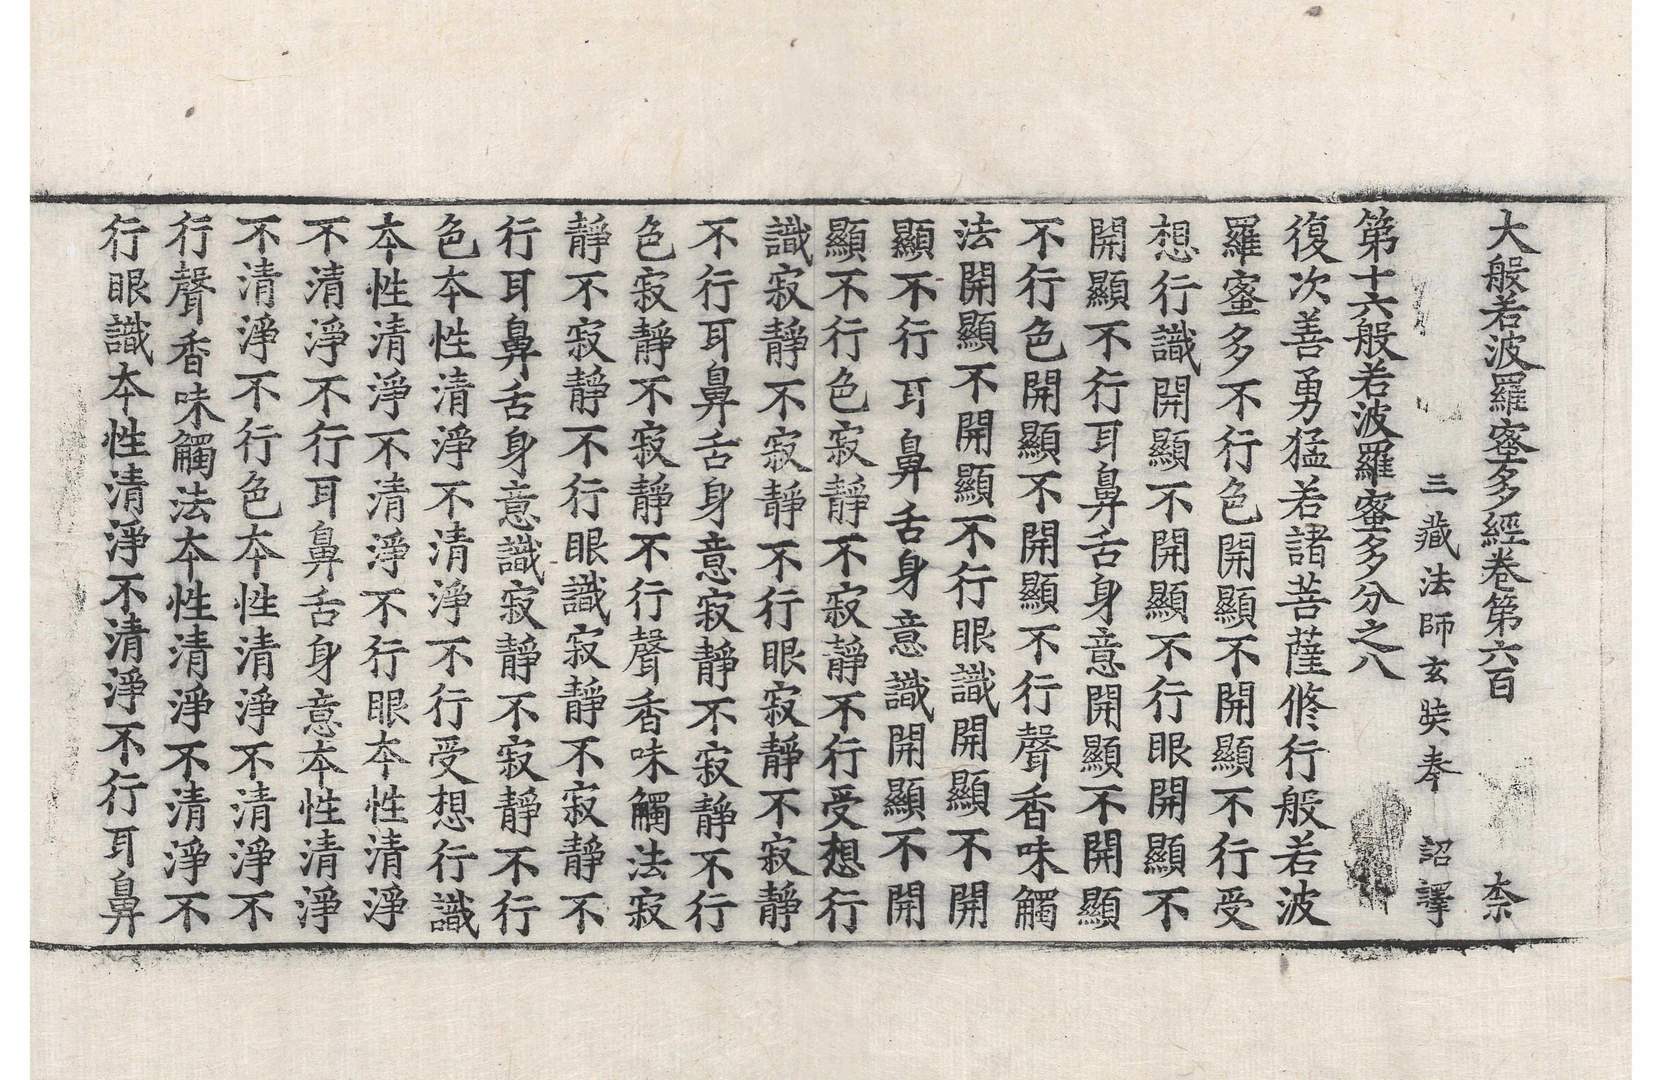 大般若波羅蜜多經卷第六百　柰
三藏法師玄奘奉　詔譯
第十六般若波羅蜜多分之八
復次善勇猛若諸菩薩修行般若波
羅蜜多不行色開顯不開顯不行受
想行識開顯不開顯不行眼開顯不
開顯不行耳鼻舌身意開顯不開顯
不行色開顯不開顯不行聲香味觸
法開顯不開顯不行眼識開顯不開
顯不行耳鼻舌身意識開顯不開
顯不行色寂靜不寂靜不行受想行
識寂靜不寂靜不行眼寂靜不寂靜
不行耳鼻舌身意寂靜不寂靜不行
色寂靜不寂靜不行聲香味觸法寂
靜不寂靜不行眼識寂靜不寂靜不
行耳鼻舌身意識寂靜不寂靜不行
色夲性清淨不清淨不行受想行識
夲性清淨不清淨不行眼夲性清淨
不清淨不行耳鼻舌身意夲性清淨
不清淨不行色夲性清淨不清淨不
行聲香味觸法夲性清淨不清淨不
行眼識夲性清淨不清淨不行耳鼻